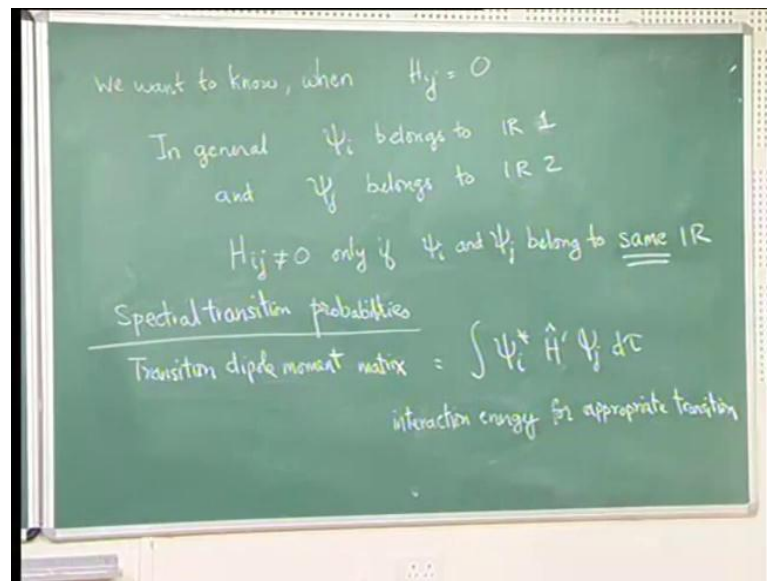 We want to know, when Hij = 0
In general ψi belongs to IR 1
and ψj belongs to IR 2
Hij ≠ 0 only if ψi and ψj belong to same IR
Spectral transition probabilities
Transition dipole moment matrix = ∫ ψi* Ĥ' ψj dτ
interaction energy for appropriate transition